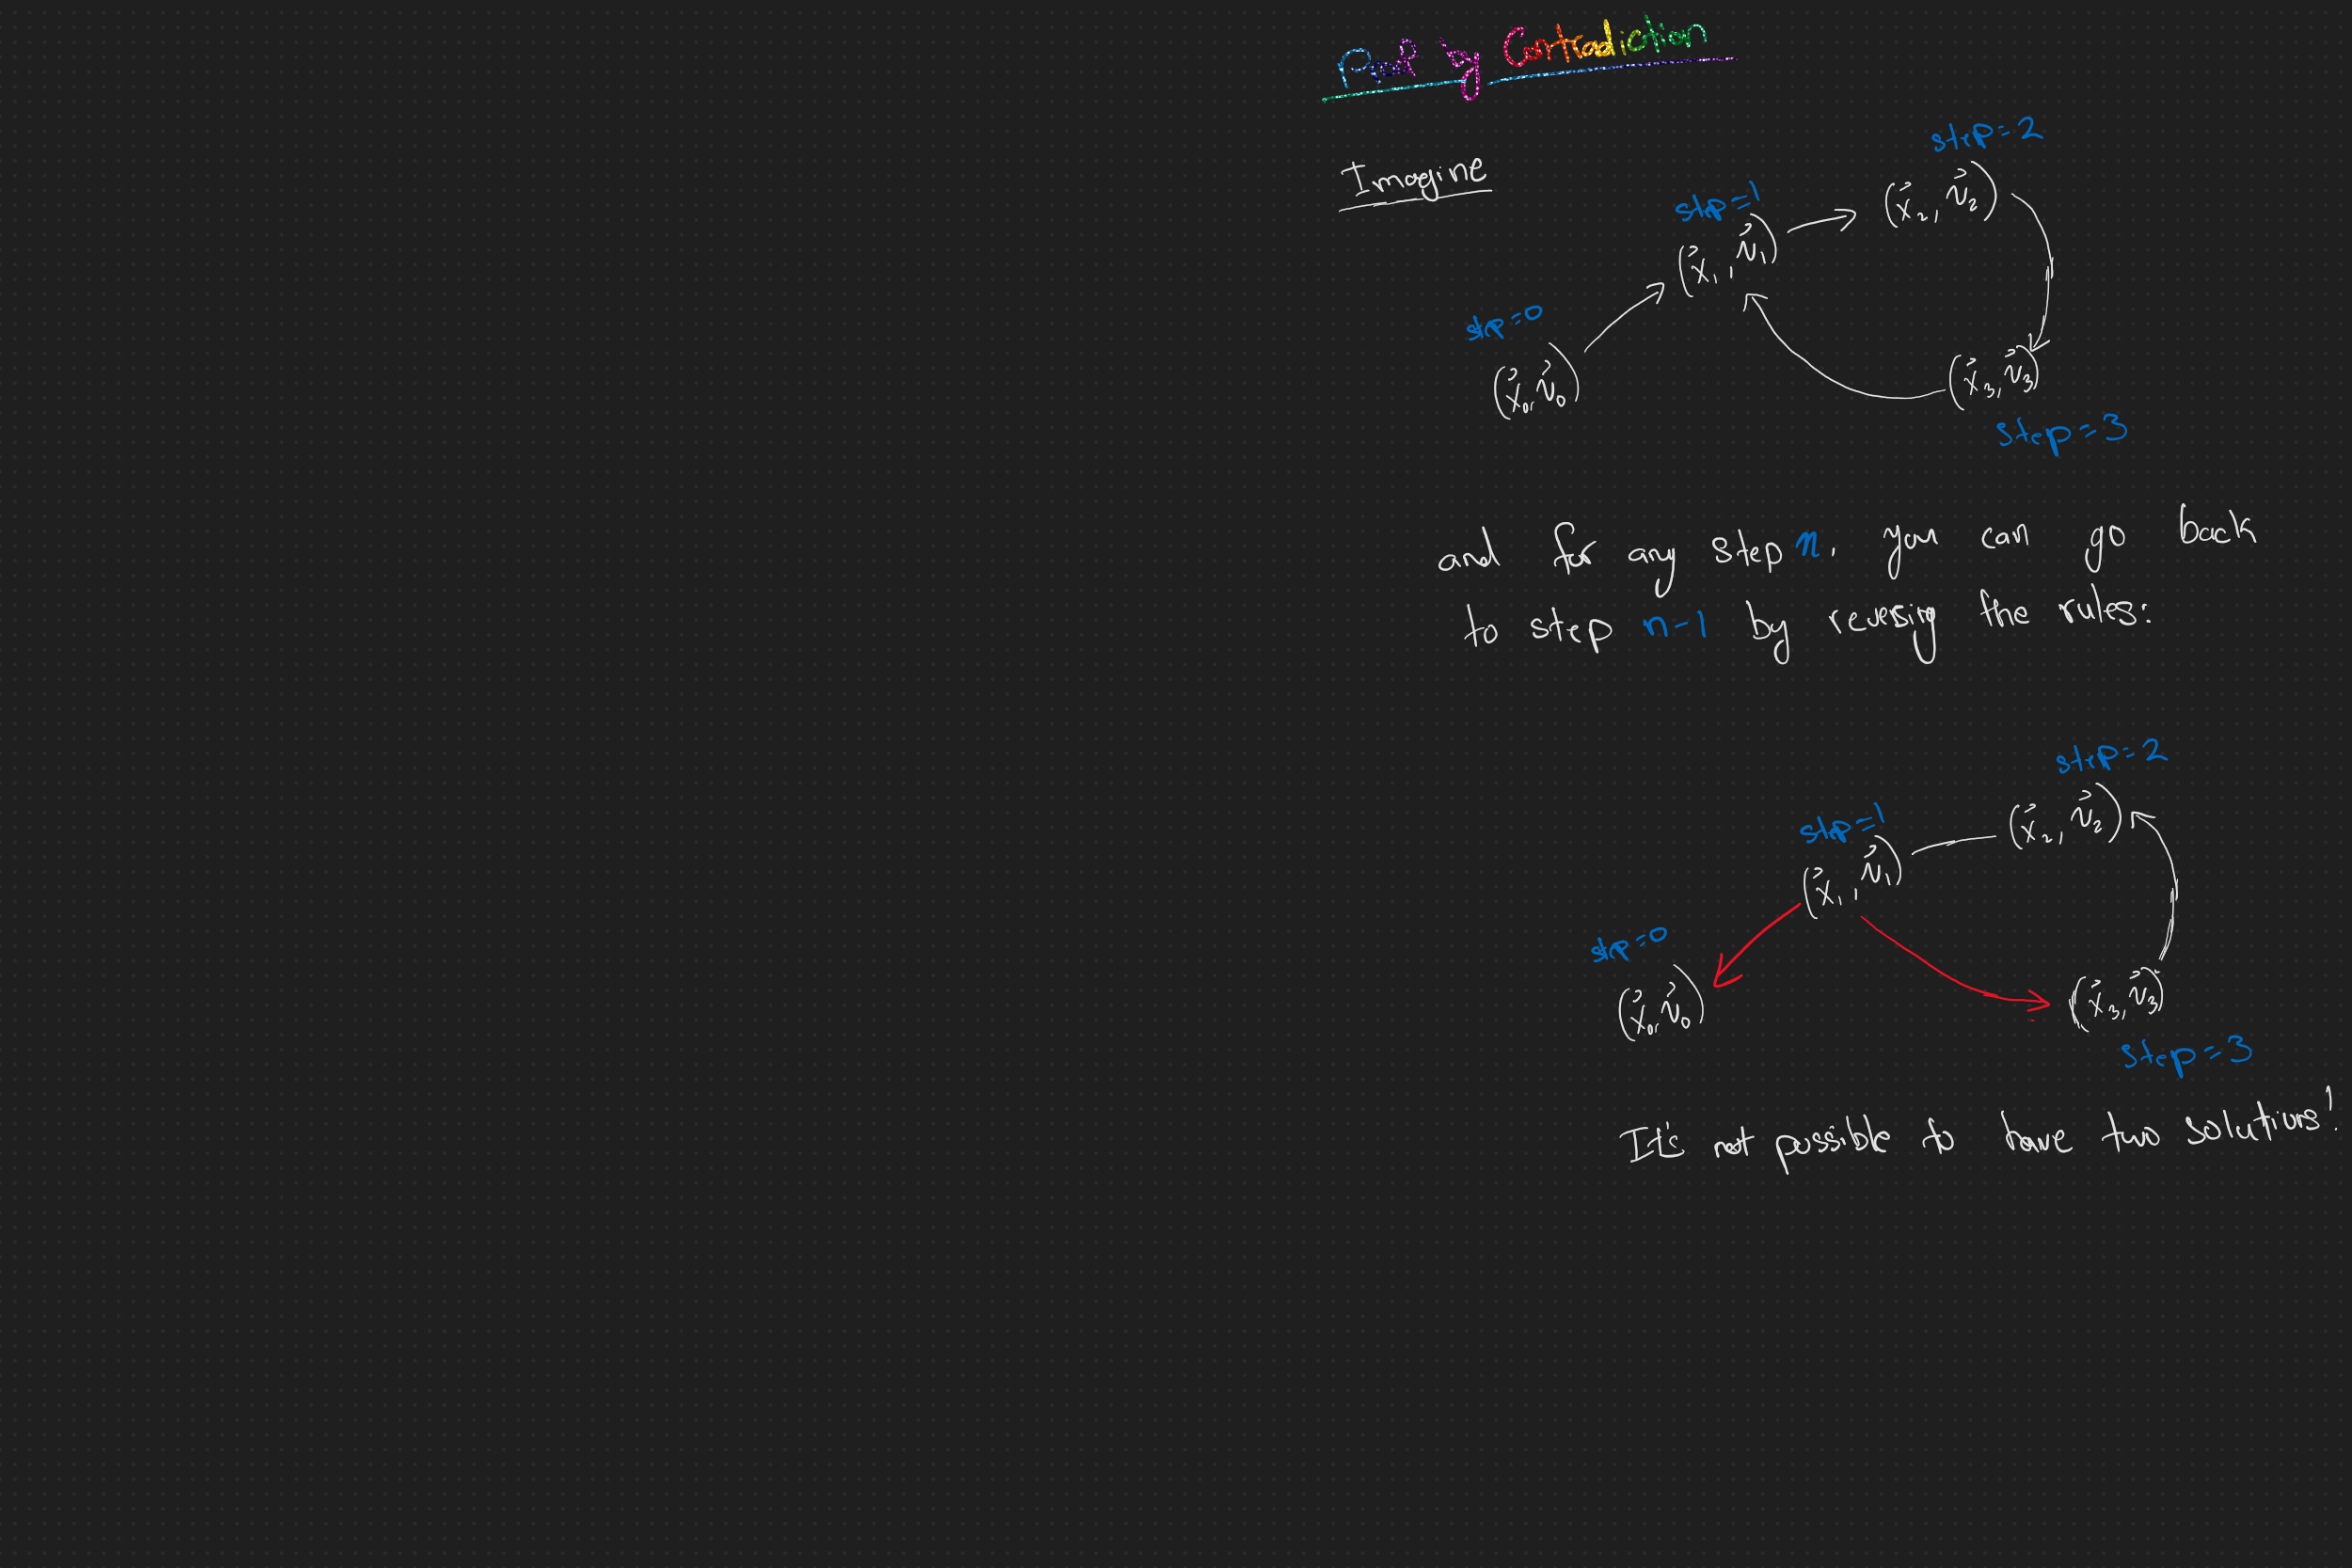 Proof by Contradiction
Imagine
step=2
step=1
(x⃗₂, v⃗₂)
(x⃗₁, v⃗₁)
step=0
(x⃗₀, v⃗₀)
(x⃗₃, v⃗₃)
step=3
and for any step n, you can go back
to step n-1 by reversing the rules:
step=2
step=1
(x⃗₂, v⃗₂)
(x⃗₁, v⃗₁)
step=0
(x⃗₀, v⃗₀)
(x⃗₃, v⃗₃)
step=3
It's not possible to have two solutions!